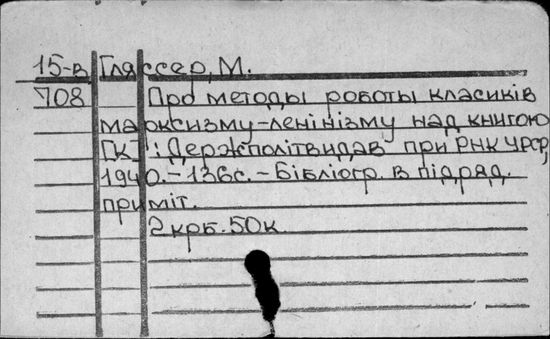 15-в Гляссер, М.
708 Про методы роботы класиків
марксизму-ленінізму над книгою
[К] : Держполітвидав при РНК УРСР,
1940.- 136с. - Бібліогр. в підряд.
приміт.
2 крб. 50к